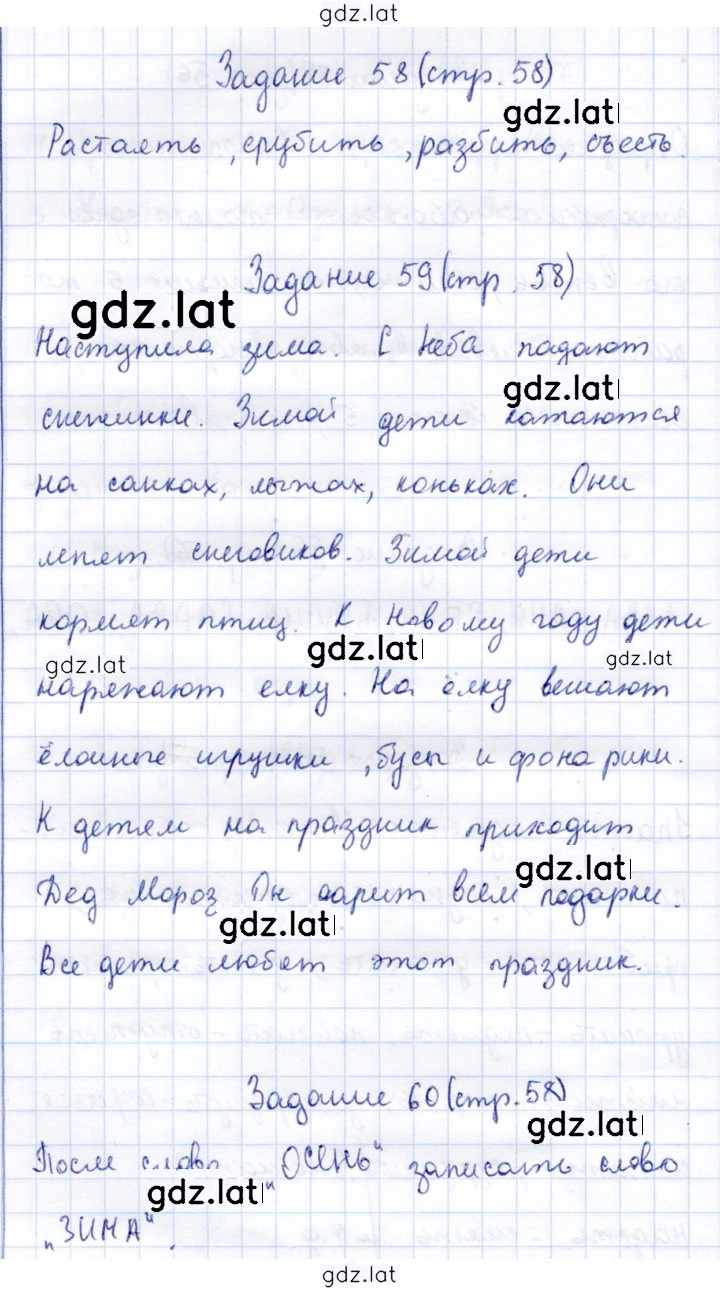 gdz.lat
Задание 58 (стр. 58)
gdz.lat
Растаять, срубить, разбить, съесть.
Задание 59 (стр. 58)
gdz.lat
Наступила зима. С неба падают
gdz.lat
снежинки. Зимой дети катаются
на санках, лыжах, коньках. Они
лепят снеговиков. Зимой дети
кормят птиц. К Новому году дети
gdz.lat gdz.lat gdz.lat
наряжают елку. На ёлку вешают
ёлочные игрушки, бусы и фонарики.
К детям на праздник приходит
gdz.lat
Дед Мороз Он дарит всем подарки.
gdz.lat
Все дети любят этот праздник.
Задание 60 (стр. 58)
gdz.lat
После слова „ОСЕНЬ" записать слово
gdz.lat
„ЗИМА".
gdz.lat